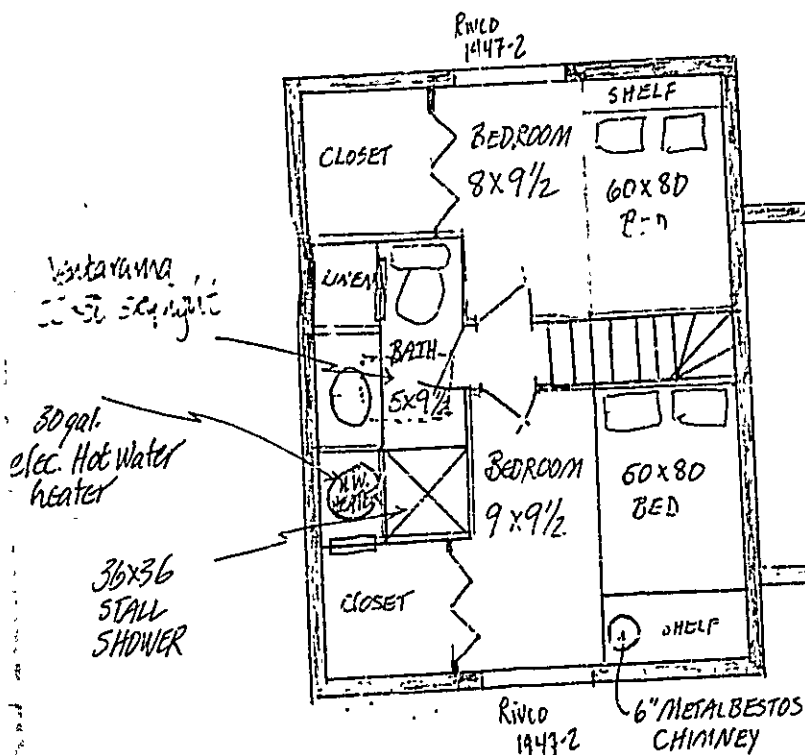 Rivco
1947-2
SHELF
CLOSET
BEDROOM
8x9 1/2
60x80
LINEN
BATH
5x9 1/2
30 gal.
elec. Hot Water
heater
H.W.
HEATER
BEDROOM
9x9 1/2
60x80
BED
36x36
STALL
SHOWER
CLOSET
SHELF
Rivco
1947-2
6" METALBESTOS
CHIMNEY